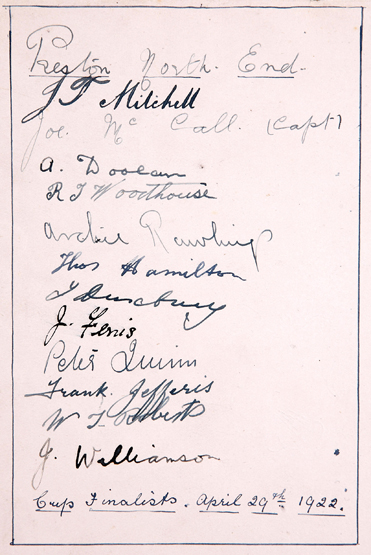 Preston North. End.
J F Mitchell
Joe. Mc Call. (Capt)
A. Doolan
R J Woodhouse
Archie Rawlings
Thos Hamilton
T Duxbury
J. Ferris
Peter Quinn
Frank. Jefferis
W T Roberts
J. Williamson
Cup Finalists. April 29th 1922.